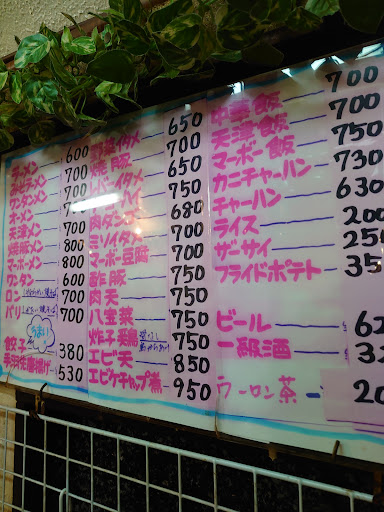 ラーメン 600
700
ワンタンメン 700
オーメン 700
天津メン 800
焼豚メン 800
マーボーメン
ワンタン 600
ロン 700
パリ 700
餃子 380
手羽先唐揚げ 530
野菜イタメ 650
焼豚 700
レバーイタメ 650
750
肉ダンゴ 680
ミソイタメ 700
マーボー豆腐 700
酢豚 750
肉天 750
八宝菜 750
炸子鶏 750
エビ天 850
エビケチャップ煮 950
中華飯 700
天津飯 700
マーボー飯 750
カニチャーハン 730
チャーハン 630
ライス
ザーサイ
フライドポテト
ビール
一級酒
ウーロン茶